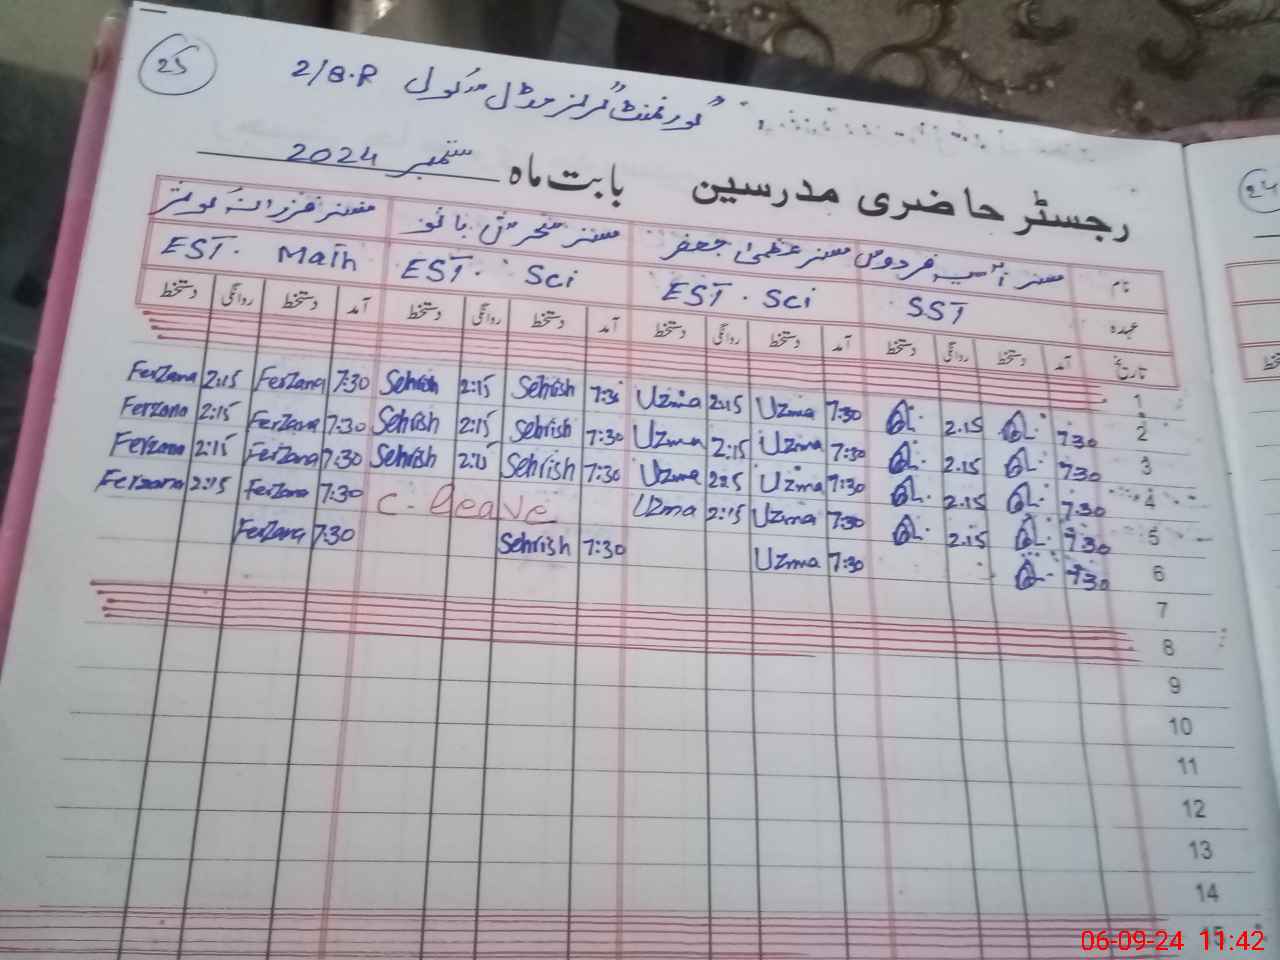 25
گورنمنٹ گرلز مڈل سکول 2/8.R
رجسٹر حاضری مدرسین بابت ماہ ستمبر 2024
24
نام مسز آسیہ فردوس مسز عظمیٰ جعفر مسز سحرش بانو مسز فرزانہ کوثر
عہدہ SST EST. Sci EST. Sci EST. Math
تاریخ آمد دستخط روانگی دستخط آمد دستخط روانگی دستخط آمد دستخط روانگی دستخط آمد دستخط روانگی دستخط
1
2 7:30 2.15 7:30 Uzma 2:15 Uzma 7:30 Sehrish 2:15 Sehrish 7:30 Ferzana 2:15 Ferzana
3 7:30 2.15 7:30 Uzma 2:15 Uzma 7:30 Sehrish 2:15 Sehrish 7:30 Ferzana 2:15 Ferzana
4 7:30 2.15 7:30 Uzma 2:15 Uzma 7:30 Sehrish 2:15 Sehrish 7:30 Ferzana 2:15 Ferzana
5 7:30 2.15 7:30 Uzma 2:15 Uzma C. leave 7:30 Ferzana 2:15 Ferzana
6 7:30 7:30 Uzma 7:30 Sehrish 7:30 Ferzana
7
8
9
10
11
12
13
14
15
06-09-24 11:42